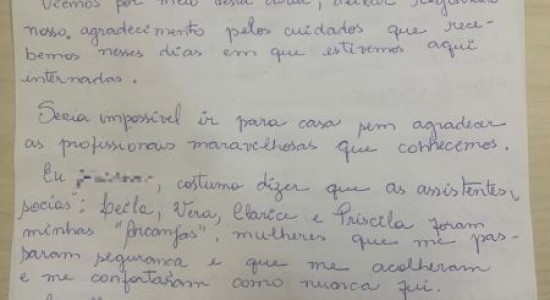 Viemos por meio desta carta, deixar registrado
nosso, agradecimento pelos cuidados que rece-
bemos nesses dias em que estivemos aqui
internadas.
Seria impossível ir para casa sem agradecer
as profissionais maravilhosas que conhecemos.
Eu , costumo dizer que as assistentes
sociais": Leila, Vera, Clarice e Priscila foram
minhas "Arcanjas", mulheres que me pas-
saram segurança e que me acolheram
e me confortaram como nunca fui.